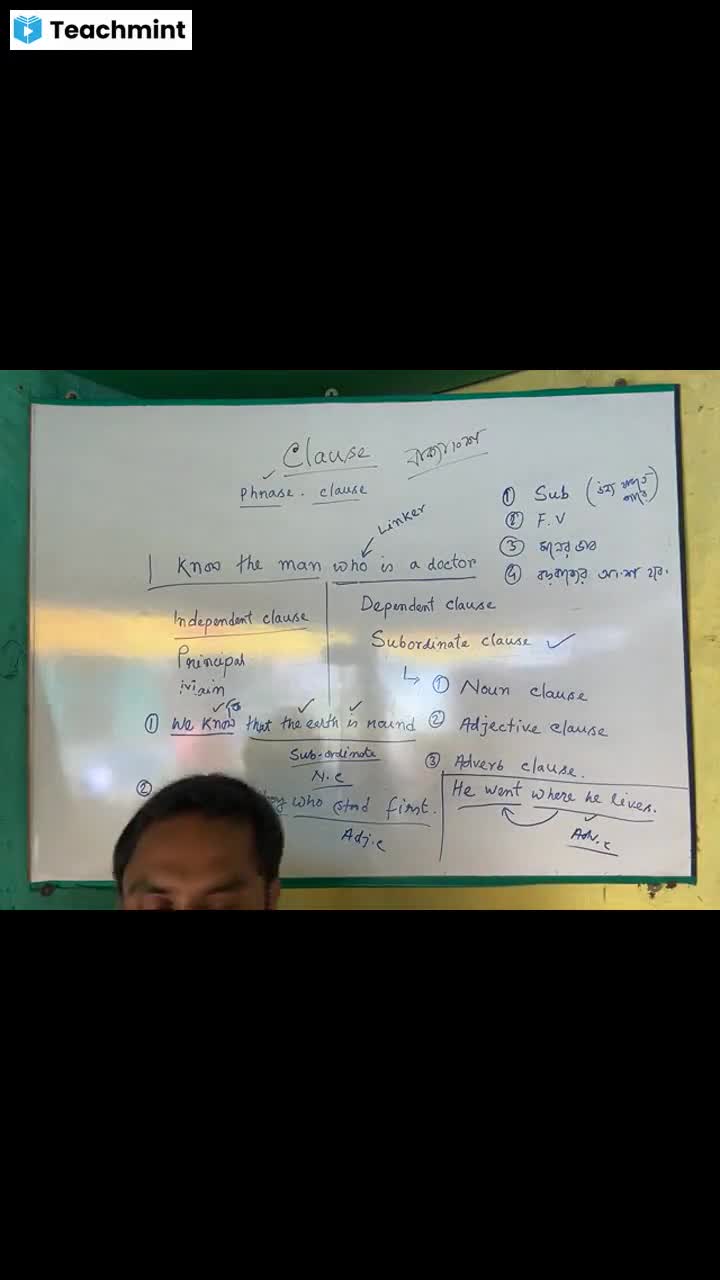 Teachmint
Clause বাক্যাংশ
Phrase. clause
Linker
① Sub (উহ্য থাকতে পারে)
② F.V
③ মনের ভাব
④ বড় বাক্যের অংশ হবে.
I know the man who is a doctor
Independent clause
Principal
Main
Dependent clause
Subordinate clause ✓
↳ ① Noun clause
② Adjective clause
③ Adverb clause.
① We know that the earth is round
Sub-ordinate
N.c
② who stood first.
Adj.c
He went where he lives.
Adv.c